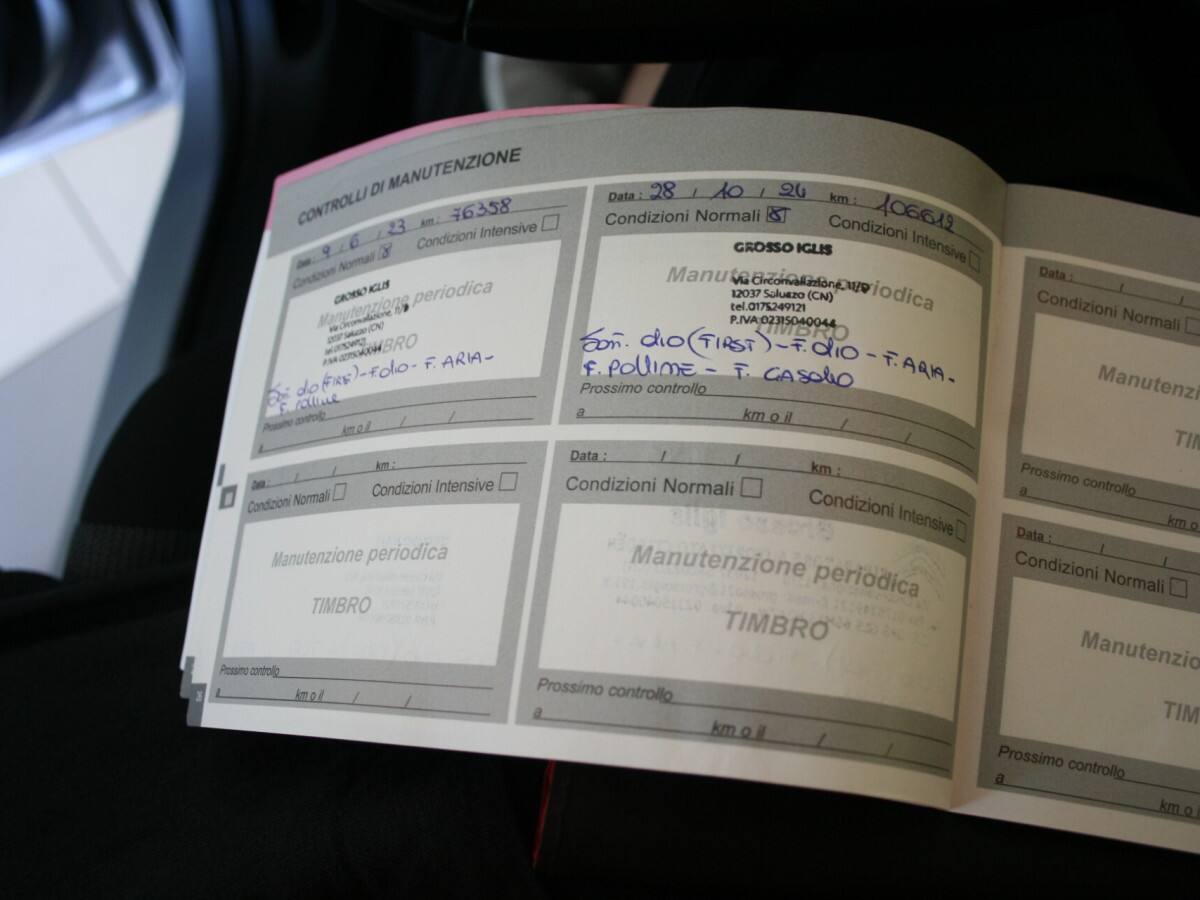 CONTROLLI DI MANUTENZIONE
Data : 9 / 6 / 23 km : 76358
Condizioni Normali Condizioni Intensive
Manutenzione periodica
TIMBRO
GROSSO IGLIS
Via Circonvallazione, 11/D
12037 Saluzzo (CN)
tel.0175249121
P.IVA 02315040044
Sost. olio (FIRST) - F. olio - F. ARIA -
F. Polline
Prossimo controllo
a km o il / /
Data : 28 / 10 / 24 km : 106612
Condizioni Normali Condizioni Intensive
Manutenzione periodica
TIMBRO
GROSSO IGLIS
Via Circonvallazione, 11/D
12037 Saluzzo (CN)
tel.0175249121
P.IVA 02315040044
Sost. olio (FIRST) - F. olio - F. ARIA -
F. POLLINE - F. GASOLIO
Prossimo controllo
a km o il / /
Data : / / km :
Condizioni Normali Condizioni Intensive
Manutenzione periodica
TIMBRO
Prossimo controllo
a km o il / /
Data : / / km :
Condizioni Normali Condizioni Intensive
Manutenzione periodica
TIMBRO
Prossimo controllo
a km o il / /
Data : / /
Condizioni Normali
Manutenzio
TIM
Prossimo controllo
a km o
Data : / /
Condizioni Normali
Manutenzio
TIM
Prossimo controllo
a km o